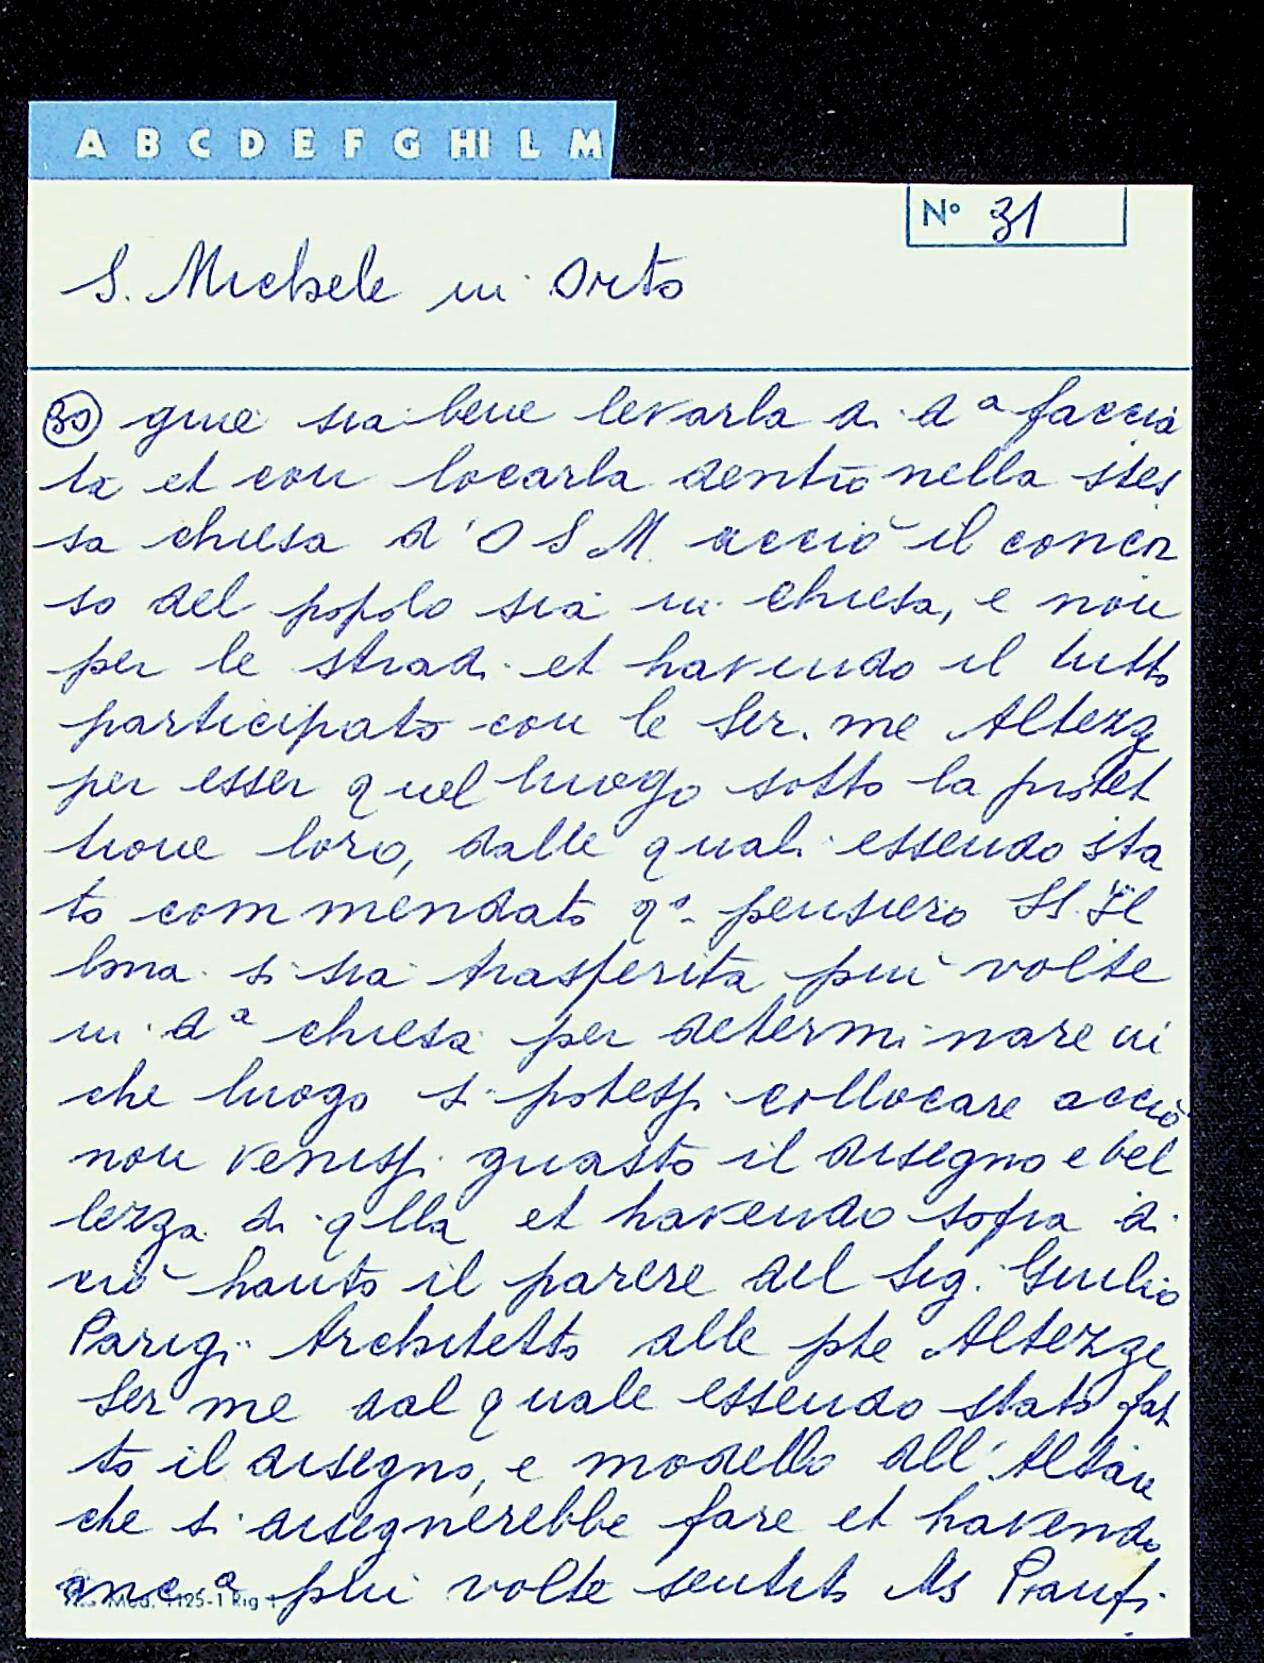 A B C D E F G HI L M
Nº 31
S. Michele in Orto
30 gine sia bene levarla di dª faccia
ta et con locarla dentro nella stes
sa chiesa d'O S M. acciò il concor
so del popolo sia in chiesa, e non
per le strad. et havendo il tutto
participato con le Ser. me Altezz
per esser quel luogo sotto la protet
tione loro, dalle quali essendo sta
to commendato qº pensiero SS. Il
lma si sia trasferita più volte
in dª chiesa per determinare in
che luogo si potess. collocare acciò
non veniss. guasto il disegno e bel
lezza di qlla et havendo sopra di
ciò hauto il parere del Sig. Giulio
Parigi Architetto alle pte Altezze
Ser me dal quale essendo stato fat
to il disegno, e modello dell' Altare
che si disegnerebbe fare et havendo
anc.ª più volte sentito Ms
Mod. 1125-1 Rig